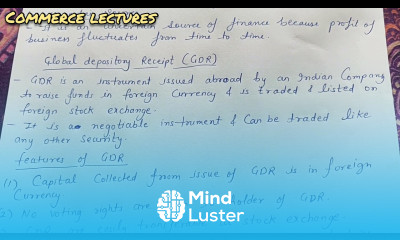 COMMERCE LECTURES
source of finance because profit of
business fluctuates from time to time.
Global depository Receipt (GDR)
- GDR is an instrument issued abroad by an Indian Company
to raise funds in foreign Currency & is traded & listed on
foreign stock exchange.
- It is a negotiable instrument & Can be traded like
any other Security
features of GDR
(1) Capital Collected from issue of GDR is in foreign
Currency
No voting rights are holder of GDR.
stock exchange
Mind
Luster